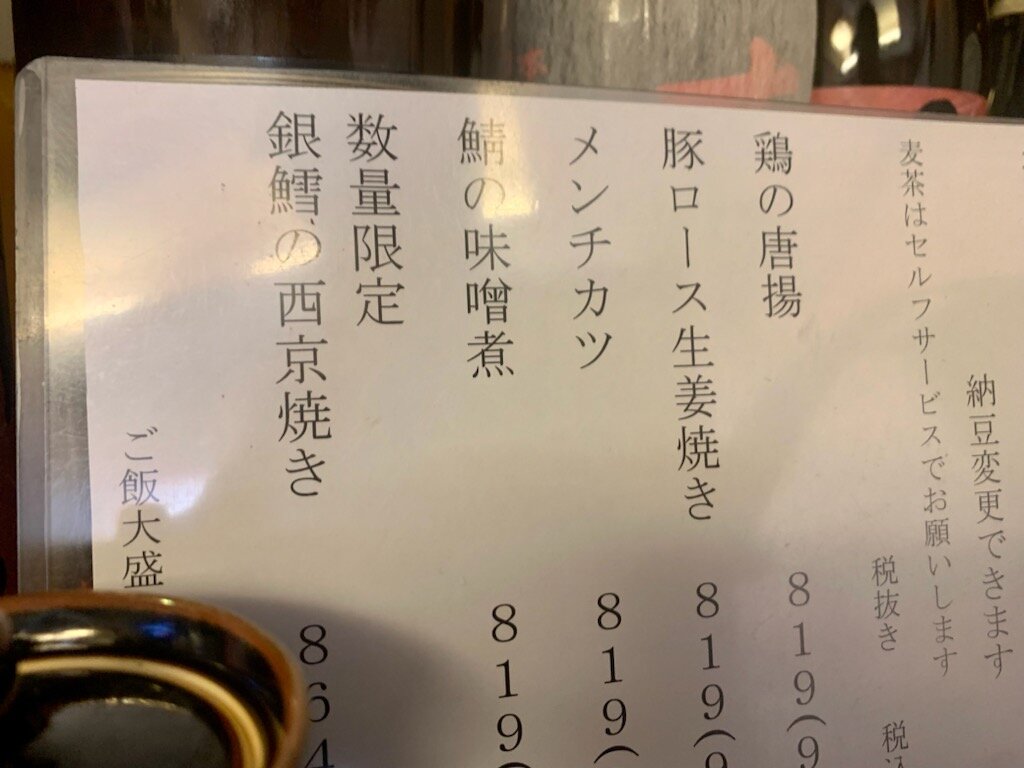 納豆変更できます
麦茶はセルフサービスでお願いします
税抜き 税込
鶏の唐揚 819(9
豚ロース生姜焼き 819(9
メンチカツ 819(
鯖の味噌煮 819(
数量限定
銀鱈の西京焼き 864
ご飯大盛